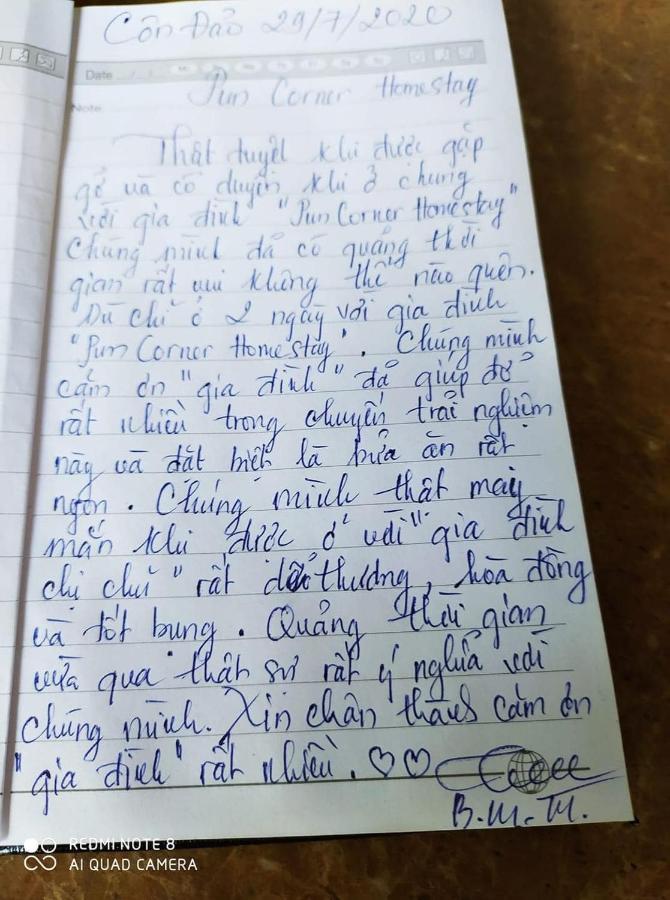 Côn Đảo 29/7/2020
Date
Note
Pun Corner Homestay
Thật tuyệt khi được gặp
gở và có duyên khi ở chung
với gia đình "Pun Corner Homestay"
Chúng mình đã có quảng thời
gian rất vui không thể nào quên.
Dù chỉ ở 2 ngày với gia đình
"Pun Corner Homestay". Chúng mình
cảm ơn "gia đình" đã giúp đở
rất nhiều trong chuyến trải nghiệm
này và đặt biệt là bửa ăn rất
ngon. Chúng mình thật may
mắn khi được ở với "gia đình
chị chủ" rất dể thương, hòa đồng
và tốt bụng. Quảng thời gian
vừa qua thật sự rất ý nghĩa với
chúng mình. Xin chân thành cảm ơn
"gia đình" rất nhiều. ♡♡
B.M.M.
REDMI NOTE 8
AI QUAD CAMERA